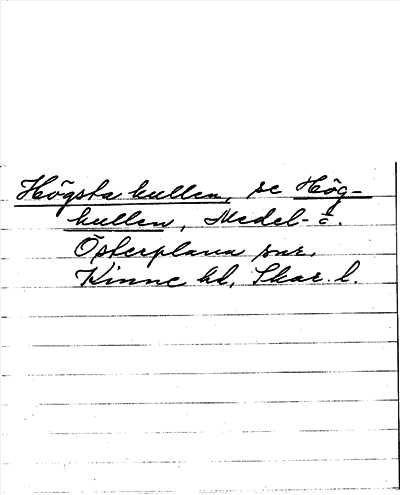 Högsta kullen, se Hög-
kullen, Medel- o.
Österplana snr,
Kinne hd, Skar. l.